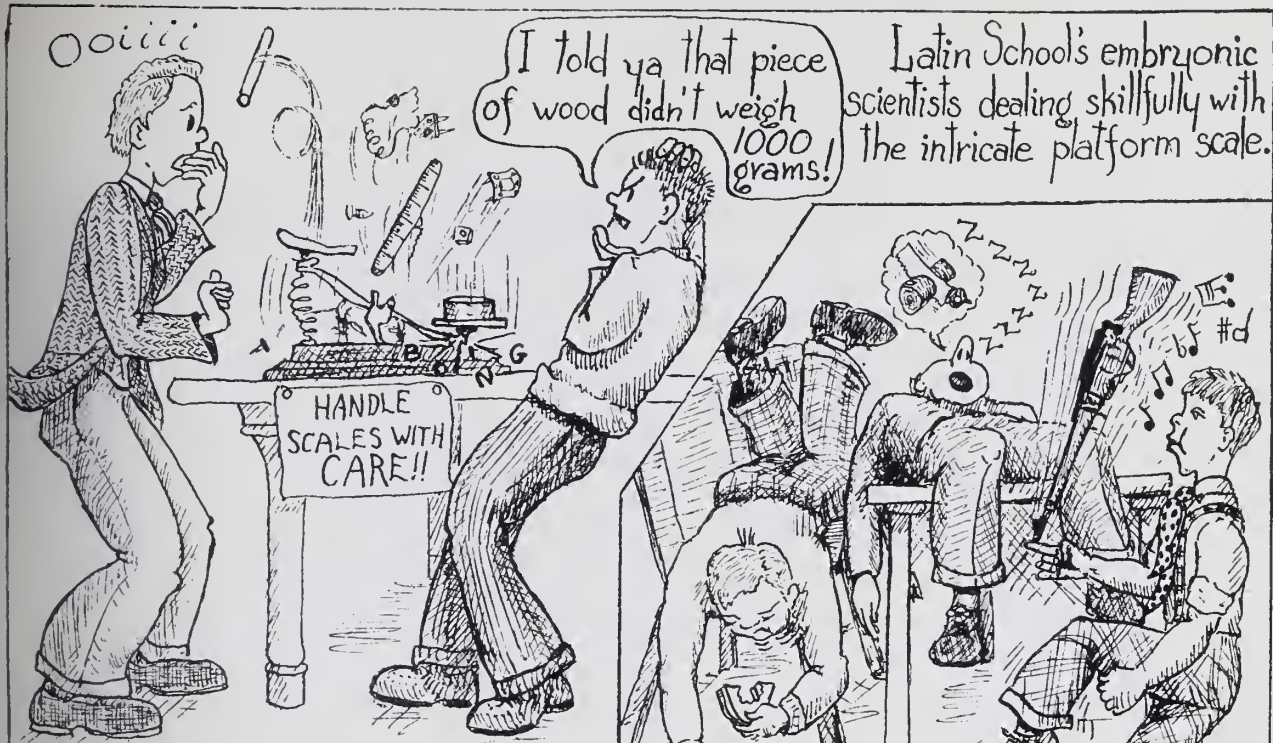 Ooiiii
I told ya that piece
of wood didn't weigh
1000
grams!
Latin School's embryonic
scientists dealing skillfully with
the intricate platform scale.
BOING
HANDLE
SCALES WITH
CARE!!
Z Z Z Z Z
Z Z Z Z
#d